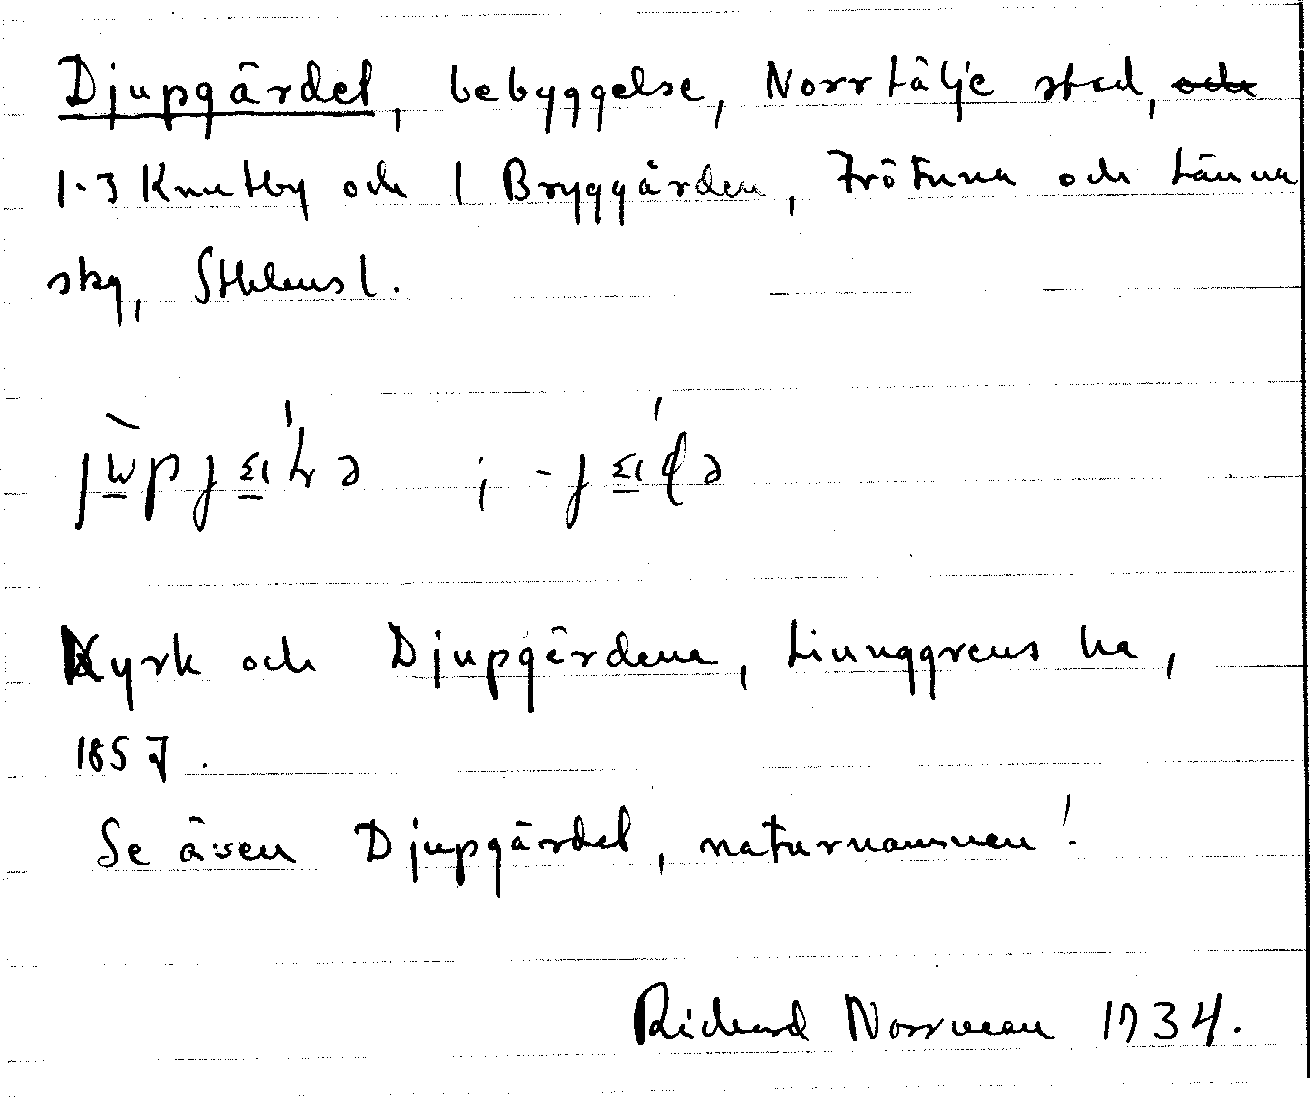 Djupgärdet, bebyggelse, Norrtälje stad, och
1-3 Knutby och 1 Bryggården, Frötuna och Länna
skg, Sthlms l.
Kyrk och Djupgärdena, Liunggrens ka,
1857.
Se även Djupgärdet, naturnamnen!
Richard Norrman 1934.